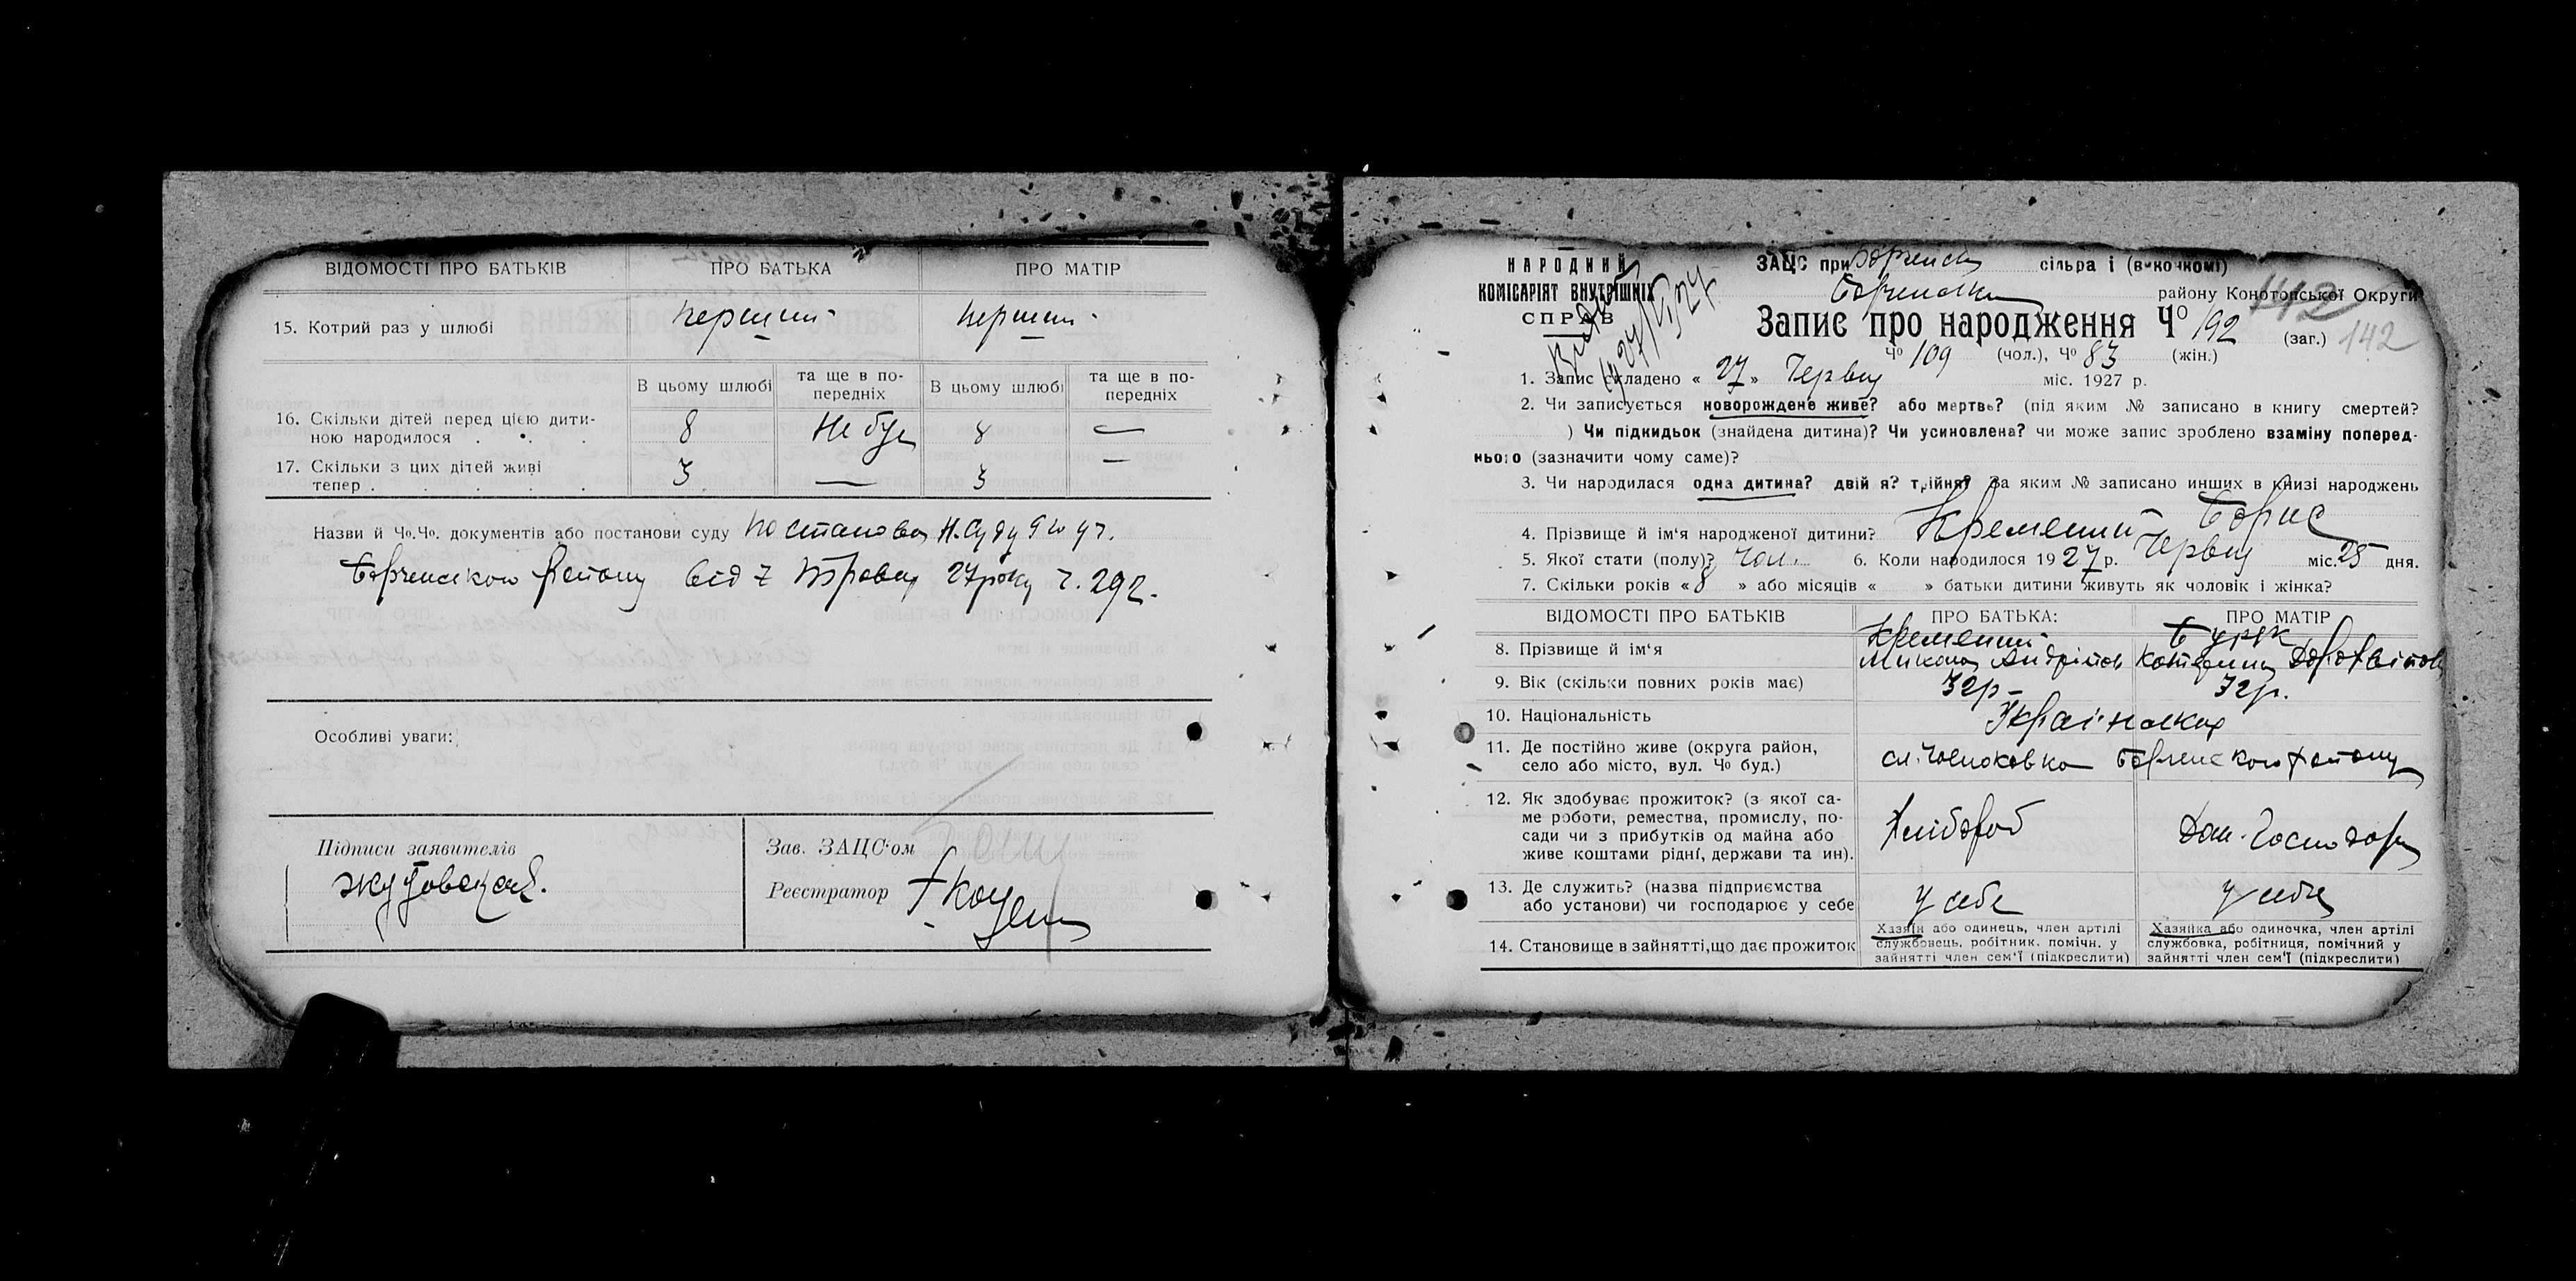 ВІДОМОСТІ ПРО БАТЬКІВ ПРО БАТЬКА ПРО МАТІР
15. Котрий раз у шлюбі перший перший
В цьому шлюбі та ще в по-передніх В цьому шлюбі та ще в по-передніх
16. Скільки дітей перед цією дити-
ною народилося 8 8 —
17. Скільки з цих дітей живі
тепер 3 — 3 —
Назви й Чо.Чо. документів або постанови суду Постанова Н.Суду
Борченского району від 7 Травня 27 року ч. 292.
Особливі уваги:
Підписи заявителів
Зав. ЗАЦС'ом
Реєстратор
НАРОДНИЙ
КОМІСАРІЯТ ВНУТРІШНІХ
СПРАВ
ЗАЦС при сільра і (виконкомі)
району Конотопської Округи
142
Запис про народження Чо 192 (заг.) 142
Чо 109 (чол.), Чо 83 (жін.)
1. Запис складено « 27 » Червня міс. 1927 р.
2. Чи записується новорождене живе? або мертве? (під яким № записано в книгу смертей?
) Чи підкидьок (знайдена дитина)? Чи усиновлена? чи може запис зроблено взаміну поперед-
нього (зазначити чому саме)?
3. Чи народилася одна дитина? двій я? трійня? За яким № записано инших в книзі народжень
4. Прізвище й ім'я народженої дитини? Кремений Борис
5. Якої стати (полу)? Чол. 6. Коли народилося 1927 р. Червня міс. 25 дня.
7. Скільки років « 8 » або місяців « » батьки дитини живуть як чоловік і жінка?
ВІДОМОСТІ ПРО БАТЬКІВ ПРО БАТЬКА: ПРО МАТІР
8. Прізвище й ім'я Кремений Микола Андрійов Катерина
9. Вік (скільки повних років має) 32р 32р.
10. Національність
11. Де постійно живе (округа район,
село або місто, вул. Чо буд.)
12. Як здобуває прожиток? (з якої са-
ме роботи, ремества, промислу, по-
сади чи з прибутків од майна або
живе коштами рідні, держави та ин). Хлібороб Дом. Господар
13. Де служить? (назва підприємства
або установи) чи господарює у себе у себе у себе
14. Становище в зайнятті,що дає прожиток
Хазяїн або одинець, член артілі
службовець, робітник, помічн. у
зайнятті член сем'ї (підкреслити)
Хазяйка або одиночка, член артілі
службовка, робітниця, помічний у
зайнятті член сем'ї (підкреслити)